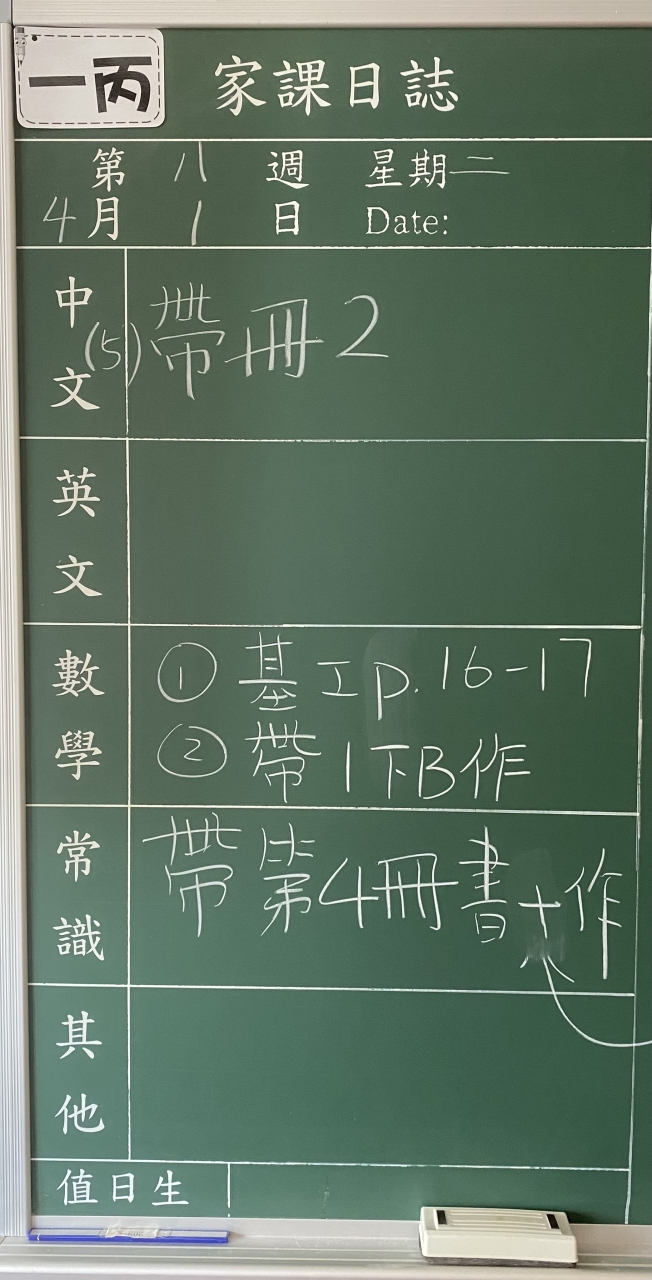 一丙 家課日誌
第 八 週 星期二
4月 1 日 Date:
中文 (5) 帶冊2
英文
數學 ① 基工 p.16-17
② 帶1下B作
常識 帶第4冊書+作
其他
值日生